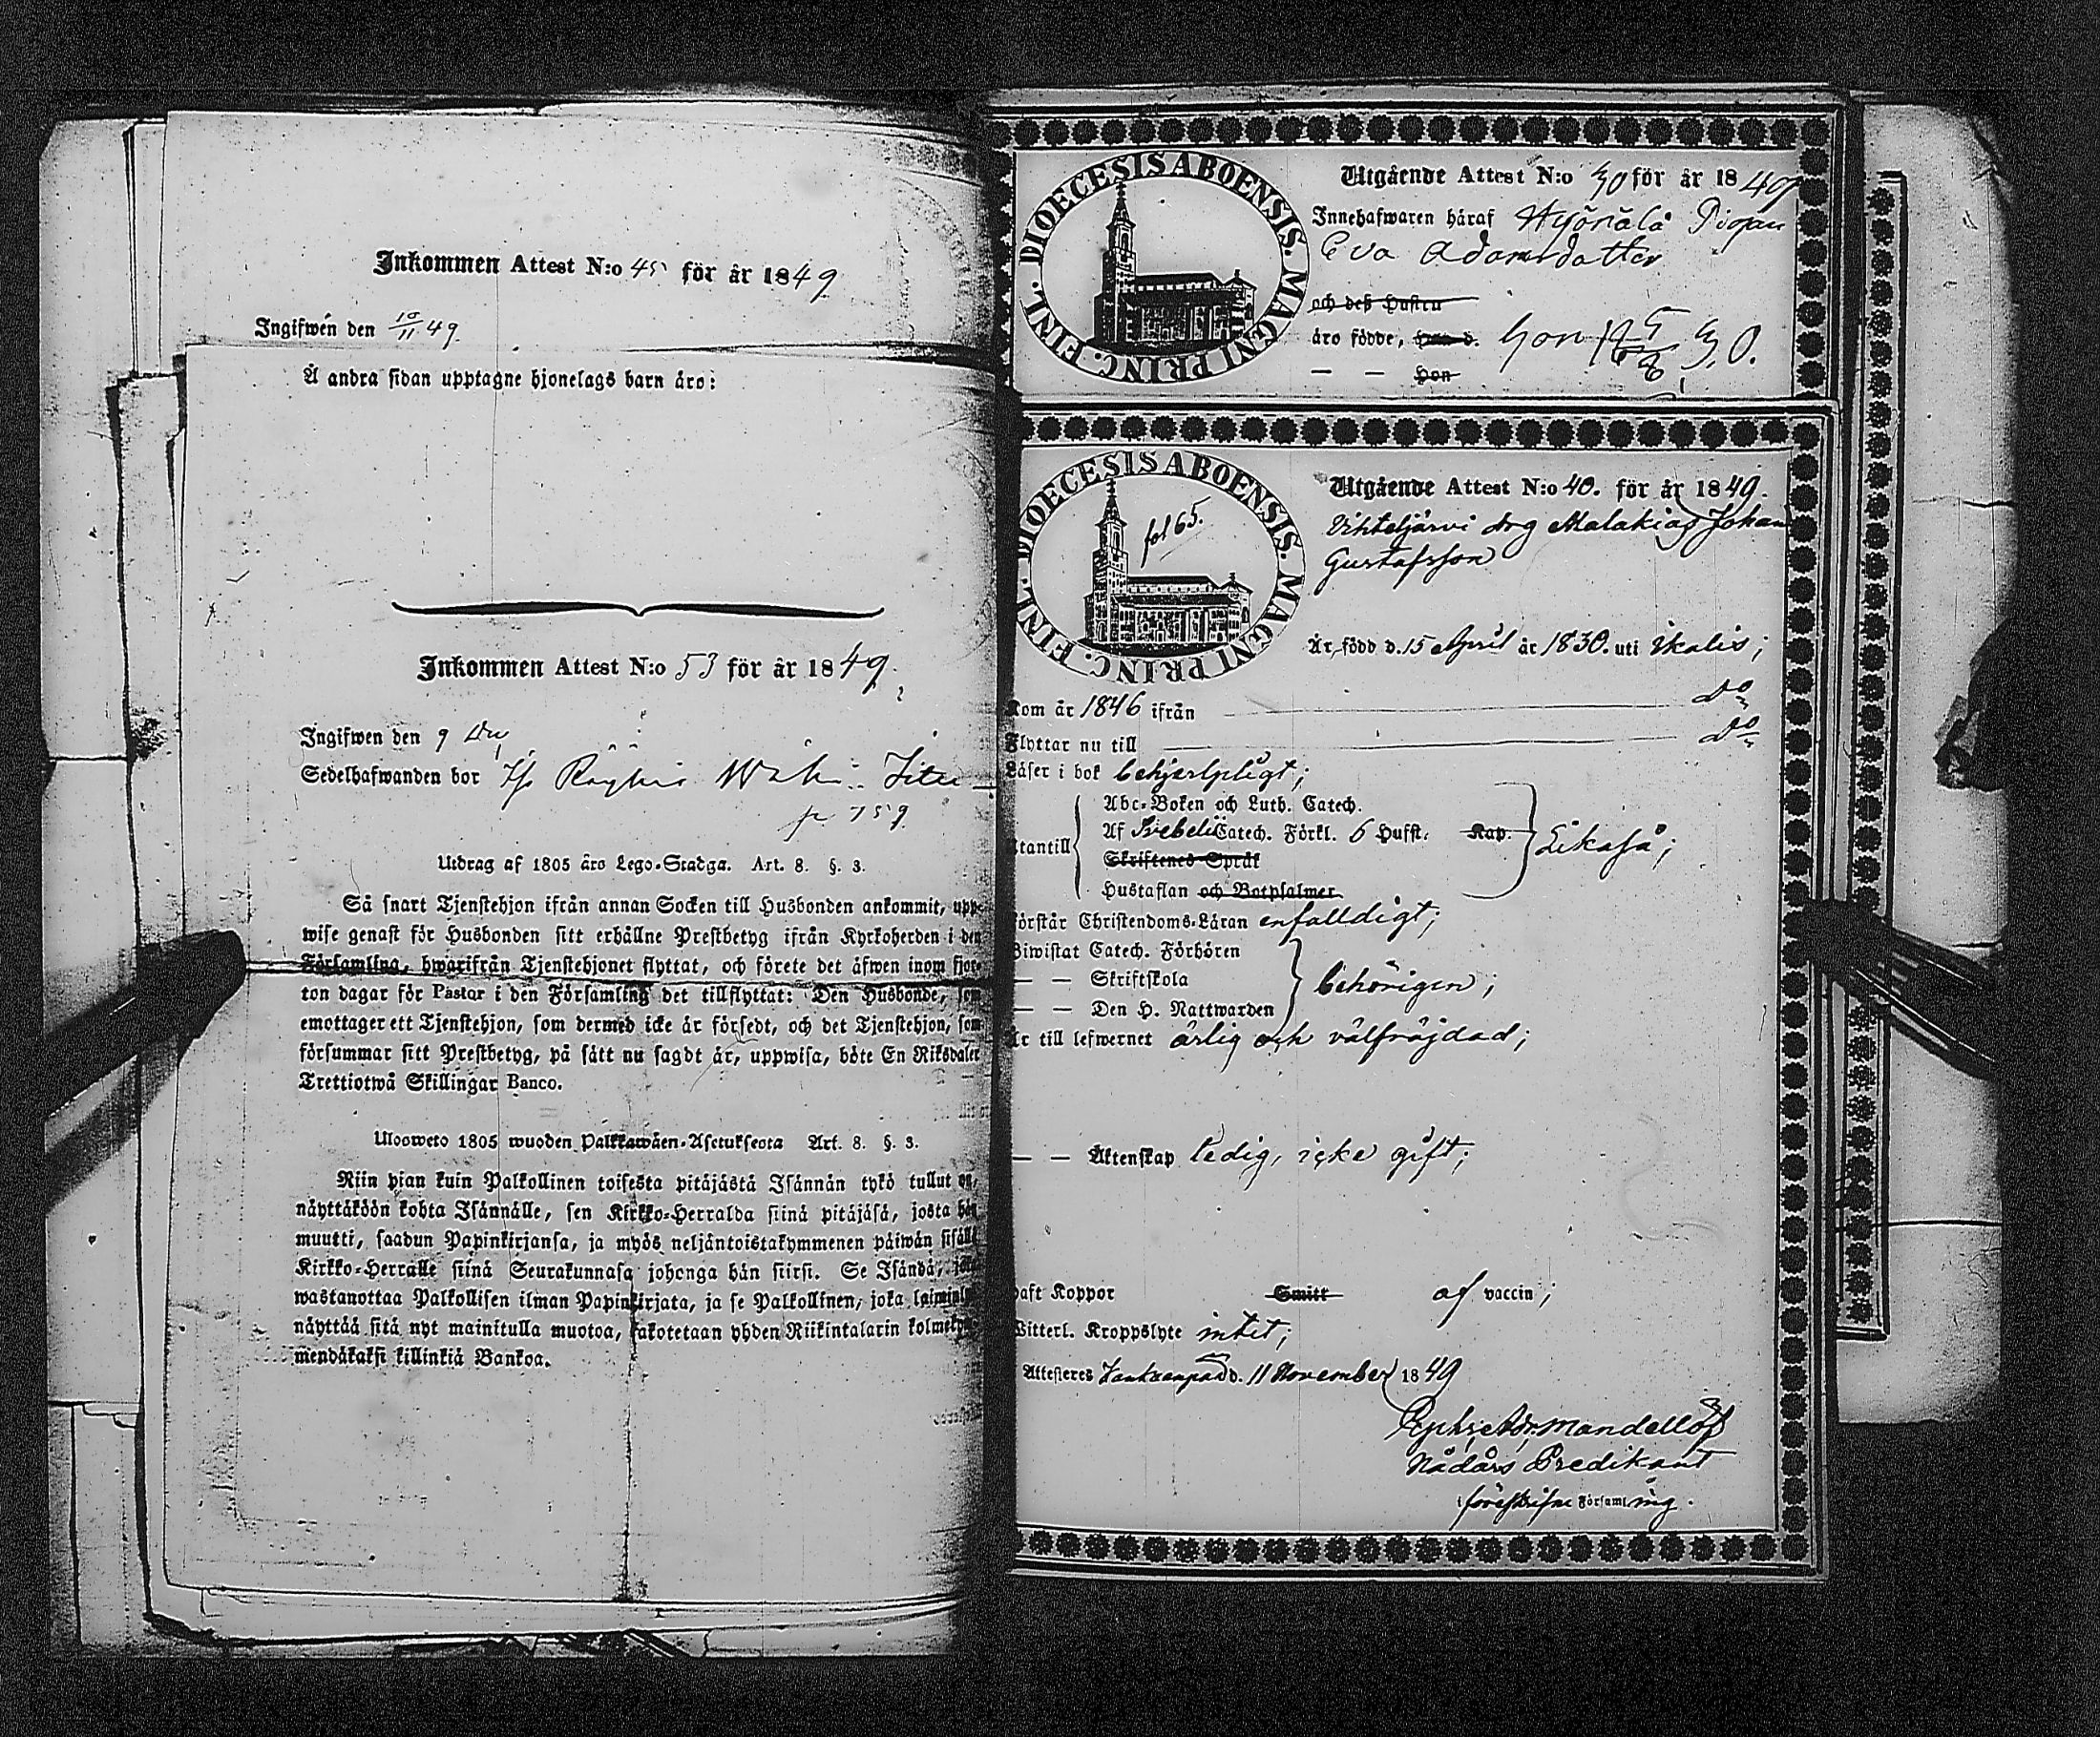 Inkommen Attest N:o 45 för år 1849
Ingifwen den 10/11 49.
Å andra sidan upptagne hjonelags barn äro:
Inkommen Attest N:o 53 för år 1849.
Ingifwen den 9
Sedelhafwanden bor
p 159
Utdrag af 1805 års Lego-Stadga. Art. 8. §. 3.
Så snart Tjenstehjon ifrån annan Socken till Husbonden ankommit, upp-
wise genast för Husbonden sitt erhållne Prestbetyg ifrån Kyrkoherden i den
Församling, hwarifrån Tjenstehjonet flyttat, och förete det äfwen inom fjor-
ton dagar för Pastor i den Församling det tillflyttat: Den Husbonde, som
emottager ett Tjenstehjon, som dermed icke är försedt, och det Tjenstehjon, som
försummar sitt Prestbetyg, på sätt nu sagdt är, uppwisa, böte En Riksdaler
Trettiotwå Skillingar Banco.
Ulosweto 1805 wuoden Palkkawäen-Asetuksesta Art. 8. §. 3.
Niin pian kuin Palkollinen toisesta pitäjästä Isännän tykö tullut on,
näyttäköön kohta Isännälle, sen Kirkko-Herralda siinä pitäjäsä, josta hän
muutti, saadun Papinkirjansa, ja myös neljäntoistakymmenen päiwän sisällä
Kirkko-Herralle siinä Seurakunnasa johonga hän siirsi. Se Isändä, joka
wastanottaa Palkollisen ilman Papinkirjata, ja se Palkollinen, joka
näyttää sitä nyt mainitulla muotoa, sakotetaan yhden Riikintalarin
mendäkaksi killinkiä Bankoa.
DIOECESIS ABOENSIS. MAGNI PRINC. FINL.
Utgående Attest N:o 30 för år 1849
Innehafwaren häraf Pigan
Eva Adamsdotter
och dess Hustru
äro födde, han d. hon
— — Hon
DIOECESIS ABOENSIS. MAGNI PRINC. FINL.
fol 65.
Utgående Attest N:o 40. för år 1849.
Vihteljärvi drg Malakias Johan
Gustafsson
Är född d. 15 April år 1830. uti Ikalis;
Kom år 1846 ifrån do
Flyttar nu till do
Läser i bok behjelpligt;
Abc-Boken och Luth. Catech.
Utantill Af Svebelii Catech. Förkl. 6 Hufst. Kap. Likaså;
Skriftenes Språk
Hustaflan och Botpsalmer
Förstår Christendoms-Läran enfalldigt;
Biwistat Catech. Förhören
— — Skriftskola behörigen;
— — Den H. Nattwarden
Är till lefwernet ärlig och välfräjdad;
— — Äktenskap ledig, icke gift;
Haft Koppor Smitt af vaccin;
Witterl. Kroppslyte intet;
Attesteras d. 11 November 1849
Mandellöf
Nådårs Predikant
i föreskrifne Församling.